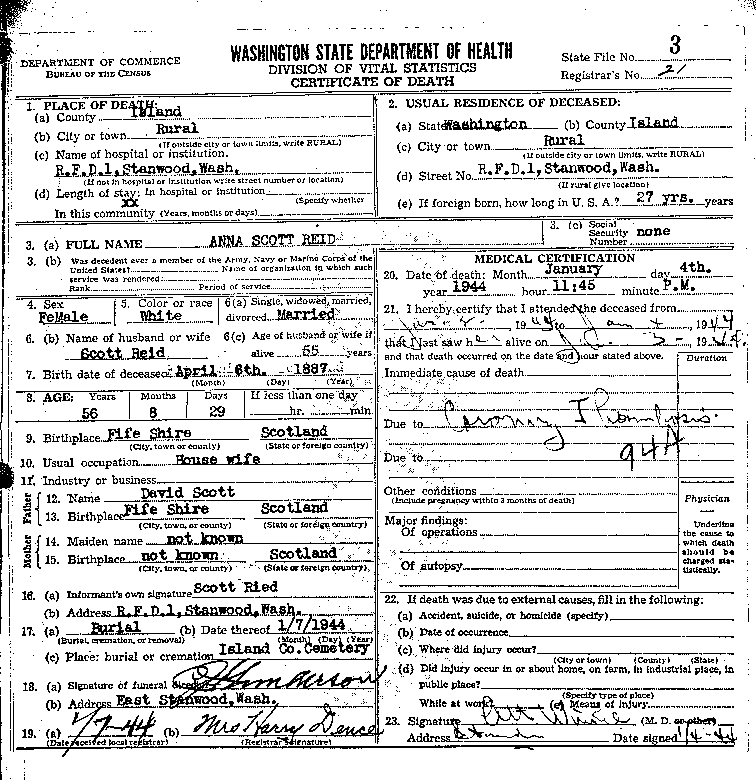 DEPARTMENT OF COMMERCE
BUREAU OF THE CENSUS
WASHINGTON STATE DEPARTMENT OF HEALTH
DIVISION OF VITAL STATISTICS
CERTIFICATE OF DEATH
State File No. 3
Registrar's No. 21
1. PLACE OF DEATH:
(a) County Island
(b) City or town Rural
(If outside city or town limits, write RURAL)
(c) Name of hospital or institution.
R.F.D.1, Stanwood, Wash.
(If not in hospital or institution write street number or location)
(d) Length of stay: In hospital or institution
(Specify whether
xx
In this community (Years, months or days)
2. USUAL RESIDENCE OF DECEASED:
(a) State Washington (b) County Island
(c) City or town Rural
(If outside city or town limits, write RURAL)
(d) Street No. R.F.D.1, Stanwood, Wash.
(If rural give location)
(e) If foreign born, how long in U. S. A.? 27 yrs. years
3. (a) FULL NAME ANNA SCOTT REID
3. (c) Social
Security none
Number
3. (b) Was decedent ever a member of the Army, Navy or Marine Corps of the
United States? Name of organization in which such
service was rendered:
Rank Period of service
4. Sex
FeMale
5. Color or race
White
6(a) Single, widowed, married,
divorced Married
6. (b) Name of husband or wife
Scott Reid
6(c) Age of husband or wife if
alive 55 years
7. Birth date of deceased April 6th. 1887
(Month) (Day) (Year)
8. AGE: Years Months Days If less than one day
56 8 29 hr. min
9. Birthplace Fife Shire Scotland
(City, town or county) (State or foreign country)
10. Usual occupation House wife
11. Industry or business
Father
12. Name David Scott
13. Birthplace Fife Shire Scotland
(City, town, or county) (State or foreign country)
Mother
14. Maiden name not known
15. Birthplace not known Scotland
(City, town, or county) (State or foreign country)
16. (a) Informant's own signature Scott Ried
(b) Address R.F.D.1, Stanwood, Wash.
17. (a) Burial (b) Date thereof 1/7/1944
(Burial, cremation, or removal) (Month) (Day) (Year)
(c) Place: burial or cremation Island Co. Cemetery
18. (a) Signature of funeral
(b) Address East Stanwood, Wash.
19. (a) 1/7-44 (b) Mrs Harry
(Date received local registrar) (Registrar's signature)
MEDICAL CERTIFICATION
20. Date of death: Month January day 4th.
year 1944 hour 11:45 minute P.M.
21. I hereby certify that I attended the deceased from
1944 to Jan 4, 1944
that I last saw her alive on
and that death occurred on the date and hour stated above.
Duration
Immediate cause of death
Due to Coronary Thrombosis.
94A
Due to
Other conditions
(Include pregnancy within 3 months of death)
Major findings:
Of operations
Of autopsy
Physician
Underline
the cause to
which death
should be
charged sta-
tistically.
22. If death was due to external causes, fill in the following:
(a) Accident, suicide, or homicide (specify)
(b) Date of occurrence
(c) Where did injury occur?
(City or town) (County) (State)
(d) Did injury occur in or about home, on farm, in industrial place, in
public place?
(Specify type of place)
While at work (e) Means of injury
23. Signature (M. D. or other)
Address Date signed 1/4-44